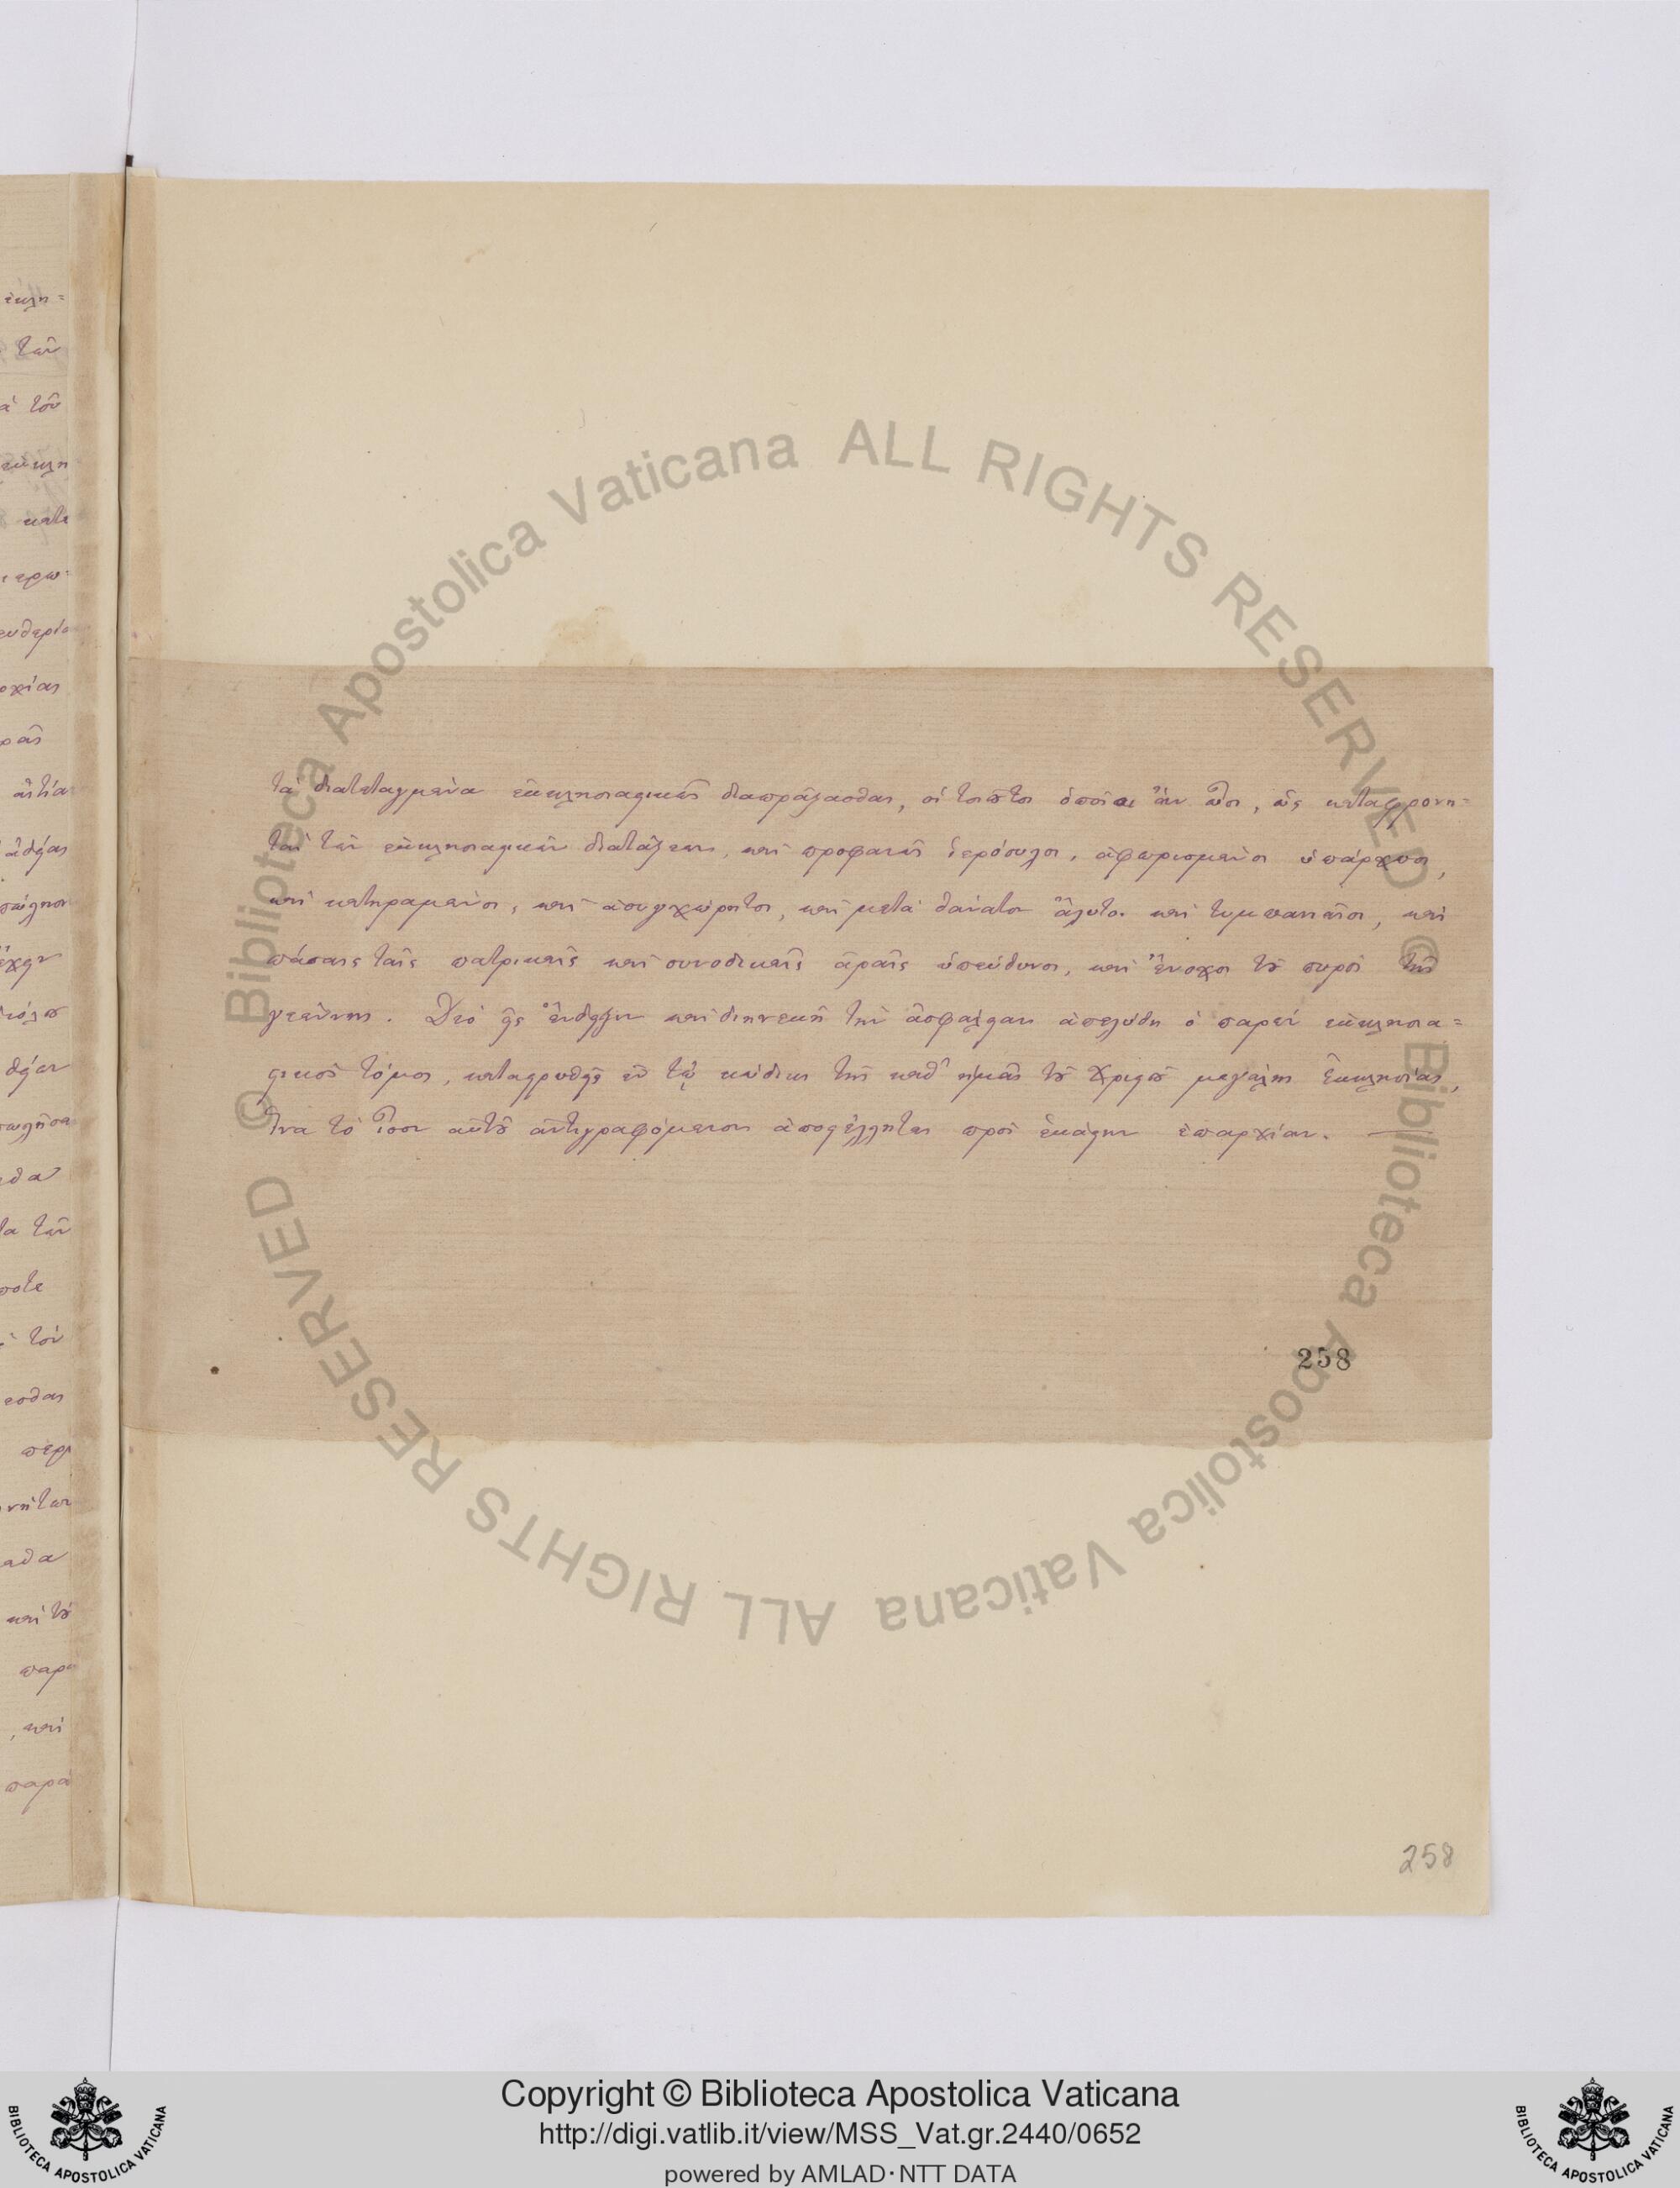 τὰ διατεταγμένα ἐκκλησιαστικῶς διαπράξασθαι, οἱ τοιοῦτοι ὁποῖοι ἂν ὦσι, ὡς καταφρονη=
ταὶ τῶν ἐκκλησιαστικῶν διατάξεων, καὶ προφανεῖς ἱερόσυλοι, ἀφωρισμένοι ὑπάρχουσι,
καὶ κατηραμένοι, καὶ ἀσυγχώρητοι, καὶ μετὰ θάνατον ἄλυτοι καὶ τυμπανιαῖοι, καὶ
πάσαις ταῖς πατρικαῖς καὶ συνοδικαῖς ἀραῖς ὑπεύθυνοι, καὶ ἔνοχοι τοῦ πυρὸς τῆς
γεέννης. Διὸ εἰς ἔνδειξιν καὶ διηνεκῆ τὴν ἀσφάλειαν ἀπελύθη ὁ παρὼν ἐκκλησια=
στικὸς τόμος, καταστρωθεὶς ἐν τῷ κώδικι τῆς καθ' ἡμᾶς τοῦ Χριστοῦ μεγάλης Ἐκκλησίας,
ἵνα τὸ ἶσον αὐτοῦ ἀντιγραφόμενον ἀποστέλληται πρὸς ἑκάστην ἐπαρχίαν.
258
258
© Biblioteca Apostolica Vaticana ALL RIGHTS RESERVED
© Biblioteca Apostolica Vaticana ALL RIGHTS RESERVED
Copyright © Biblioteca Apostolica Vaticana
http://digi.vatlib.it/view/MSS_Vat.gr.2440/0652
powered by AMLAD·NTT DATA
BIBLIOTECA APOSTOLICA VATICANA
BIBLIOTECA APOSTOLICA VATICANA